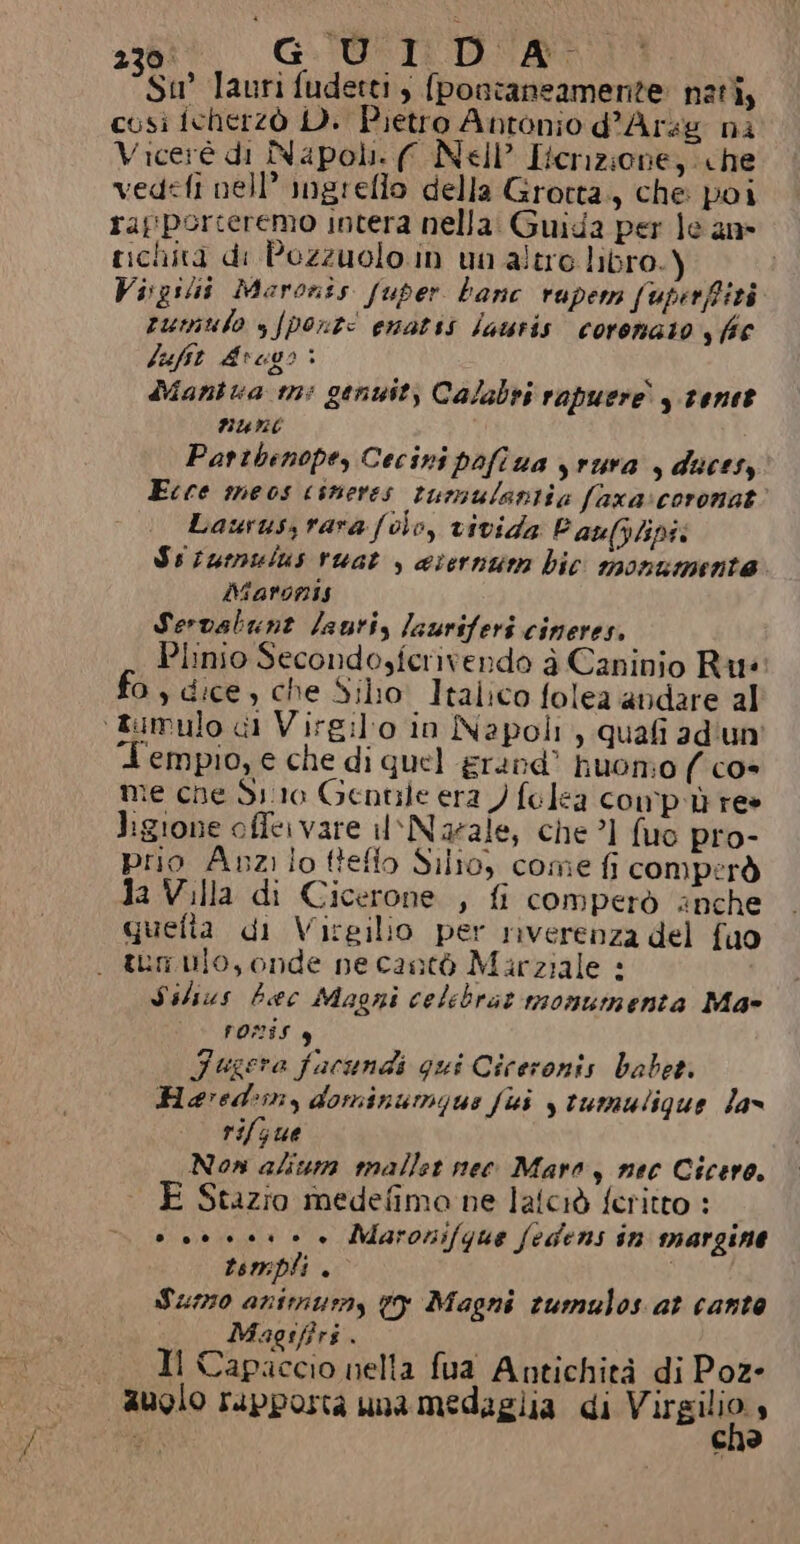 230 GUIDA
Su' lauri ſudetti, ſpontaneamente nati,
così ſcherzò D. Pietro Antonio d'Arag na
Viceré di Napoli. ( Nell' Iſcrizione, che
vedeſi nell' ingreſſo della Grotta, che poi
rapporteremo intera nella Guida per le an-
tichità di Pozzuolo in un altro libro.)
Virgilii Maronis ſuper hanc rupem ſuperſtiti
tumulo, ſponte enatis lauris coronato, ſic
luſit Arago:
Mantua me genuit, Calabri rapuere, tenet
nunc
Parthenope, Cecini paſcua, rura, duces,
Ecce meos cineres tumulantia ſaxa coronat
Laurus, rara ſolo, vivida Pauſylipi:
Si tumulus ruat, æternum hic monumenta
Maronis
Servabunt lauri, lauriferi cineres.
Plinio Secondo, ſcrivendo à Caninio Ru-
fo, dice, che Silio Italico ſolea andare al
tumulo di Virgilio in Napoli, quaſi ad un
Tempio, e che di quel grand' huomo ( co-
me che Silio Gentile era ) ſolea con più re-
ligione oſſervare il Natale, che 'l ſuo pro-
prio Anzi lo ſteſſo Silio, come ſi comperò
la Villa di Cicerone, ſi comperò anche
queſta di Virgilio per riverenza del ſuo
tumulo, onde ne cantò Marziale:
Silius hæc Magni celebrat monumenta Ma-
ronis,
Jugera facundi qui Ciceronis habet.
Hæredem, dominumque ſui, tumulique la-
riſque
Non alium mallet nec Maro, nec Cicero.
E Stazio medeſimo ne laſciò ſcritto:
........ Maroniſque ſedens in margine
templi.
Sumo animum, & Magni tumulos at canto
Magiſtri.
Il Capaccio nella ſua Antichità di Poz-
zuolo rapporta una medaglia di Virgilio,
che